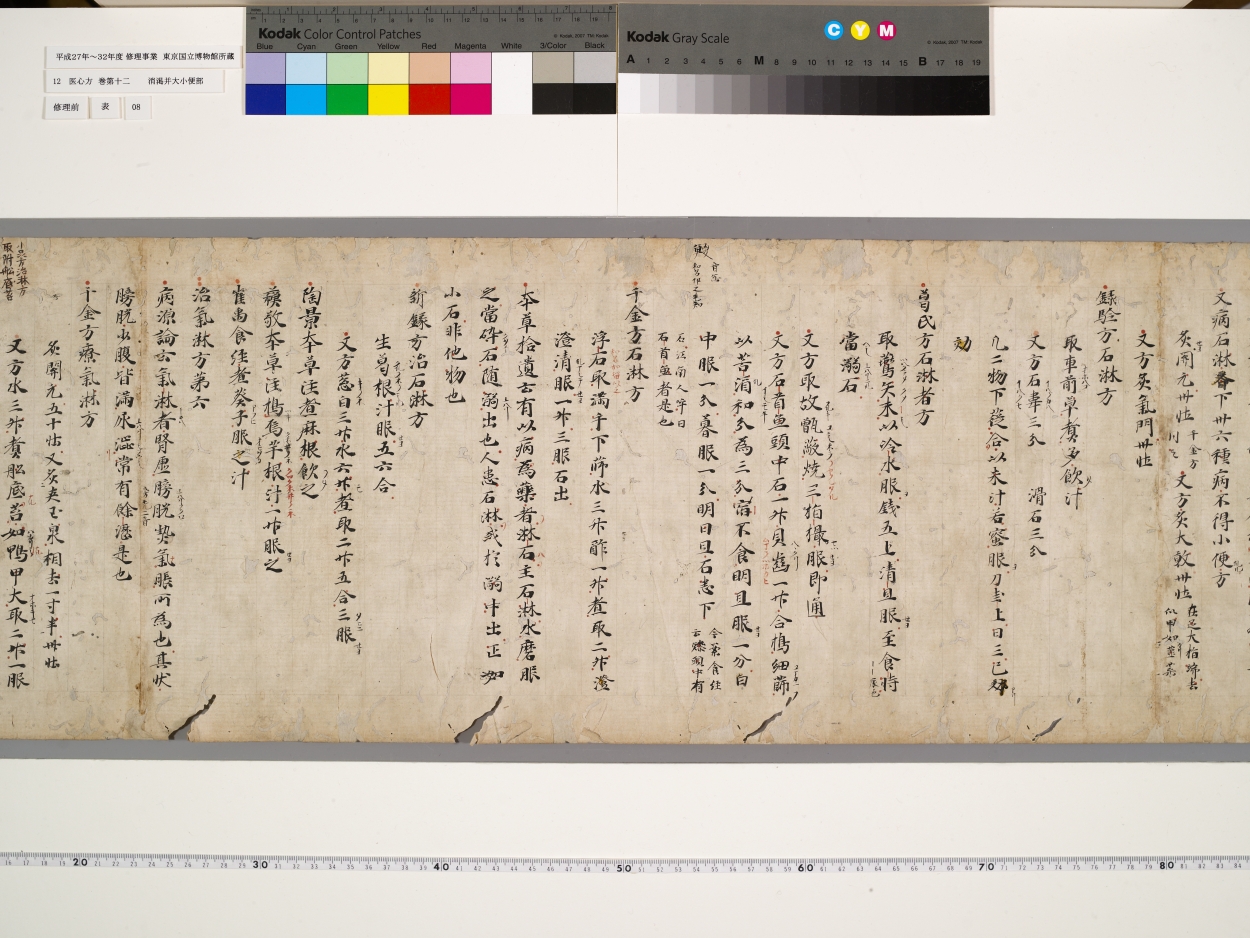 平成27年～32年度 修理事業 東京国立博物館所蔵
12 医心方 巻第十二 消渇并大小便部
修理前 表 08
Kodak Color Control Patches
© Kodak, 2007 TM: Kodak
Blue Cyan Green Yellow Red Magenta White 3/Color Black
Kodak Gray Scale
C Y M
© Kodak, 2007 TM: Kodak
A 1 2 3 4 5 6 M 8 9 10 11 12 13 14 15 B 17 18 19
又病石淋番下卅六種病不得小便方
灸關元卅壮 千金方 又方灸大敦卅壮
又方灸氣門卅壮
録驗方石淋方
取車前草煑多飲汁
又方石韋三分 滑石三分
凢二物下篩合以米汁若蜜服刀圭上日三已
効
葛氏方石淋者方
取鷩矢末以冷水服錢五上清旦服至食時
當溺石
又方取故甑蔽燒三指撮服即通
又方石首魚頭中石一升貝齒一升合擣細篩
以苦酒和分為三分宿不食明旦服一分白
中服一分暮服一分明日旦石悉下
石首魚者是也
千金方石淋方
浮石取滿手下篩水三升酢一升煮取二升澄
澄清服一升三服石出
本草拾遺云有以病為藥者淋石主石淋水磨服
之當碎石随溺出也人患石淋或於溺中出正如
小石非他物也
新録方治石淋方
生葛根汁服五六合
又方葱白三升水六升煮取二升五合三服
陶景本草注煮麻根飲之
蘓敬本草注擣為芋根汁一升服之
崔禹食經煮葵子服之汁
治氣淋方第六
病源論云氣淋者腎虚膀胱熱氣脹所為也其状
膀胱小腹皆滿尿澁常有餘瀝是也
千金方療氣淋方
灸關元五十壮又灸夾玉泉相去一寸半卅壮
又方水三升煑舩底苔如鴨卵大取二升一服
小品方治淋方
取附舩底苔
20 30 40 50 60 70 80